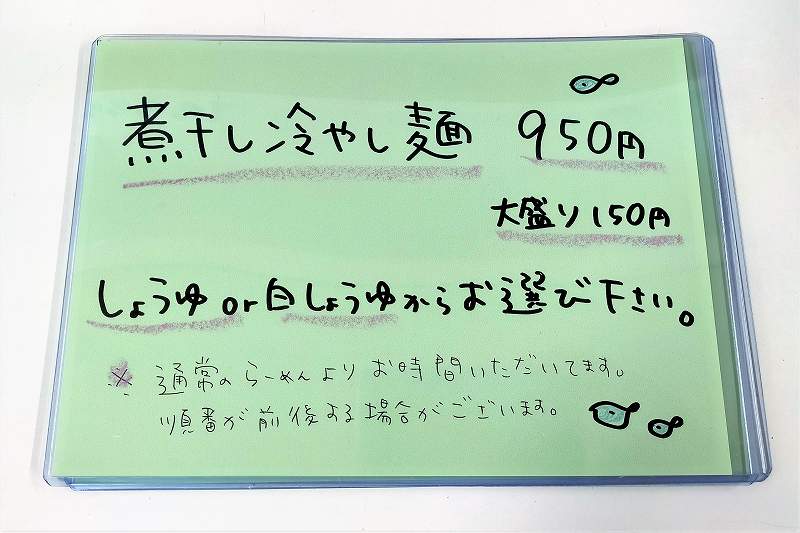 煮干し冷やし麺 950円
大盛り150円
しょうゆor白しょうゆからお選び下さい。
※ 通常のらーめんよりお時間いただいてます。
順番が前後する場合がございます。